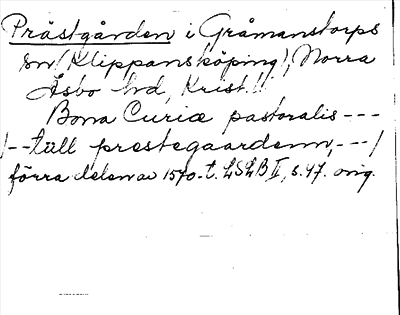 Prästgården i Gråmanstorps
sn (Klippans köping), Norra
Åsbo hd, Krist.l.
Bona Curiæ pastoralis ---
/--till prestegaardenn,---/
förra delen av 1570-t. LSLB II, s. 47. orig.